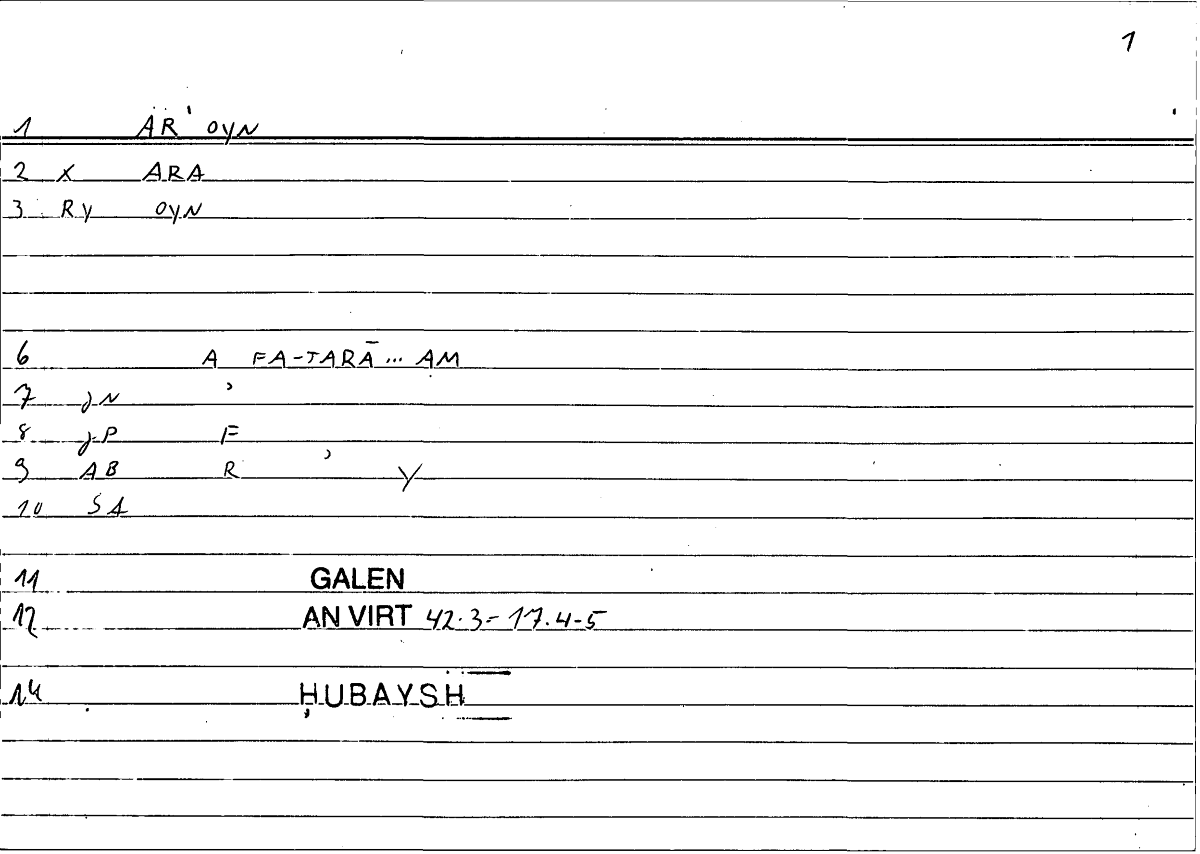 1
1 ÄR' OYN
2 X ARA
3 RY OYN
6 A FA-TARĀ... AM
7 JN ’
8 JP F
9 AB R ’ Y
10 SA
11 GALEN
12 AN VIRT 42.3=17.4-5
14 ḤUBAYSH